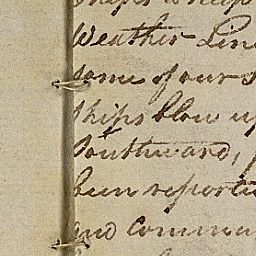 Weather Line
some of our S
Ships blow up
Southward, 
been reporte
and comma